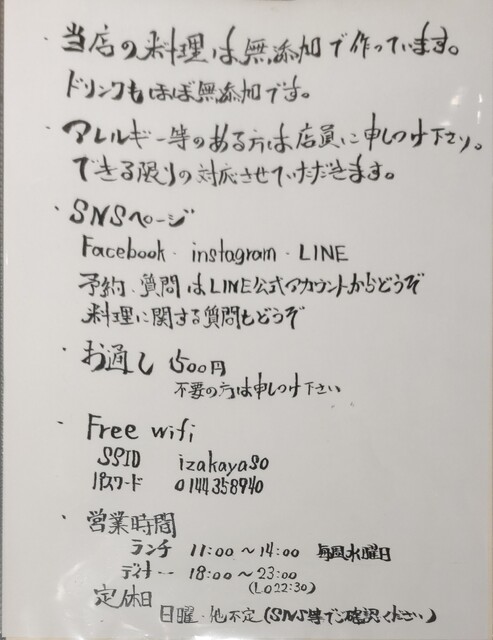 ・当店の料理は無添加で作っています。
ドリンクもほぼ無添加です。
・アレルギー等のある方は店員に申しつけ下さい。
できる限りの対応させていただきます。
・SNSページ
Facebook・instagram・LINE
予約・質問はLINE公式アカウントからどうぞ
料理に関する質問もどうぞ
・お通し 500円
不要の方は申しつけ下さい
・Free wifi
SSID izakayaso
パスワード 0144358940
・営業時間
ランチ 11:00〜14:00 毎週水曜日
ディナー 18:00〜23:00
(LO22:30)
定休日
日曜・他不定(SNS等でご確認ください)